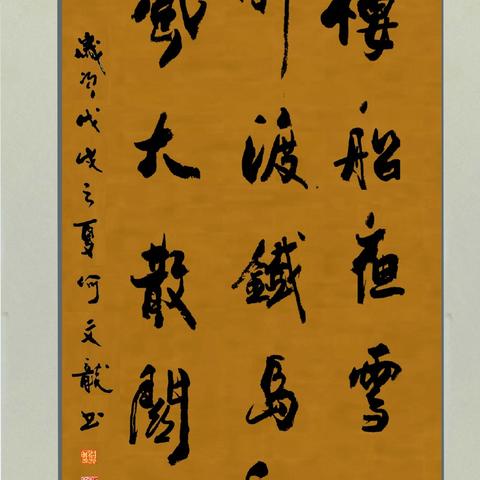 樓船夜雪
渡鐵馬
風大散關
歲次戊戌之夏何文龍書